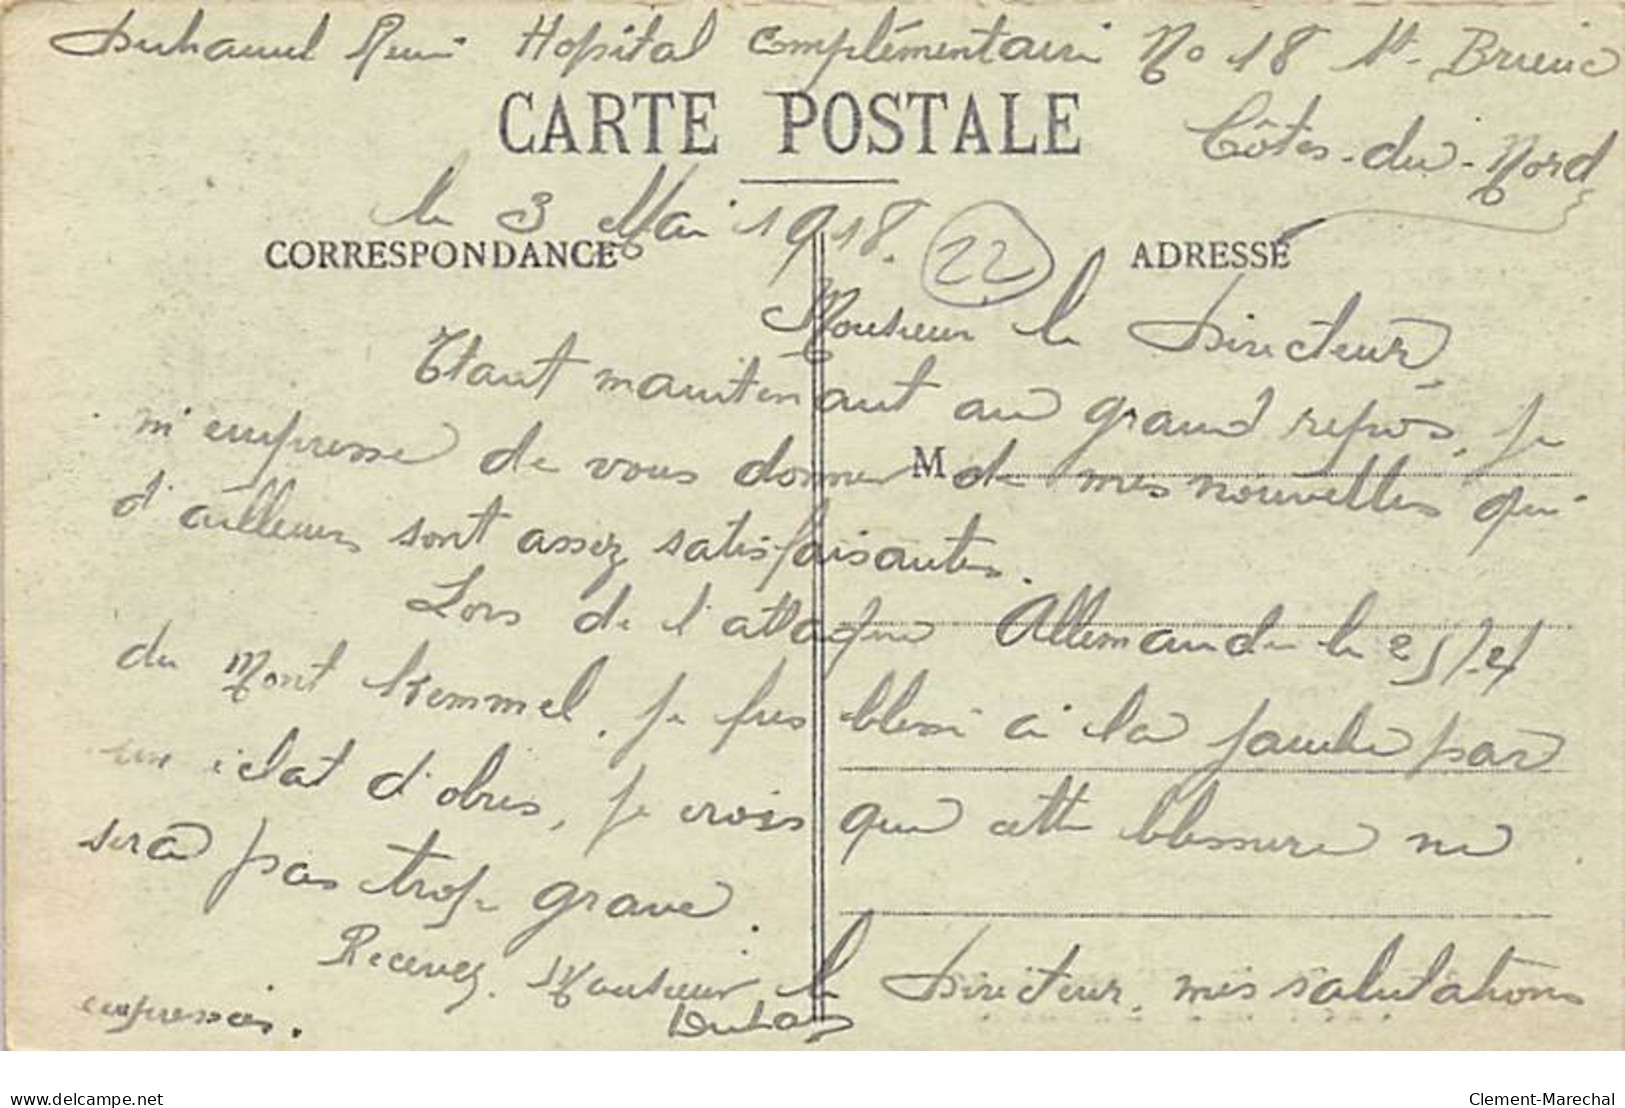 Duhamel René Hopital Complémentaire No 18 St. Brieuc
CARTE POSTALE
Côtes-du-Nord
le 3 Mai 1918.
22
CORRESPONDANCE
ADRESSE
Monsieur le Directeur,
Etant maintenant au grand repos, je
m'empresse de vous donner de mes nouvelles qui
M
d'ailleurs sont assez satisfaisantes.
Lors de l'attaque Allemande le 25/4
du Mont Kemmel, je fus blessé à la jambe par
un éclat d'obus, je crois que cette blessure ne
sera pas trop grave.
Recevez, Monsieur le Directeur, mes salutations
empressées.
delcampe.net
Clement-Marechal